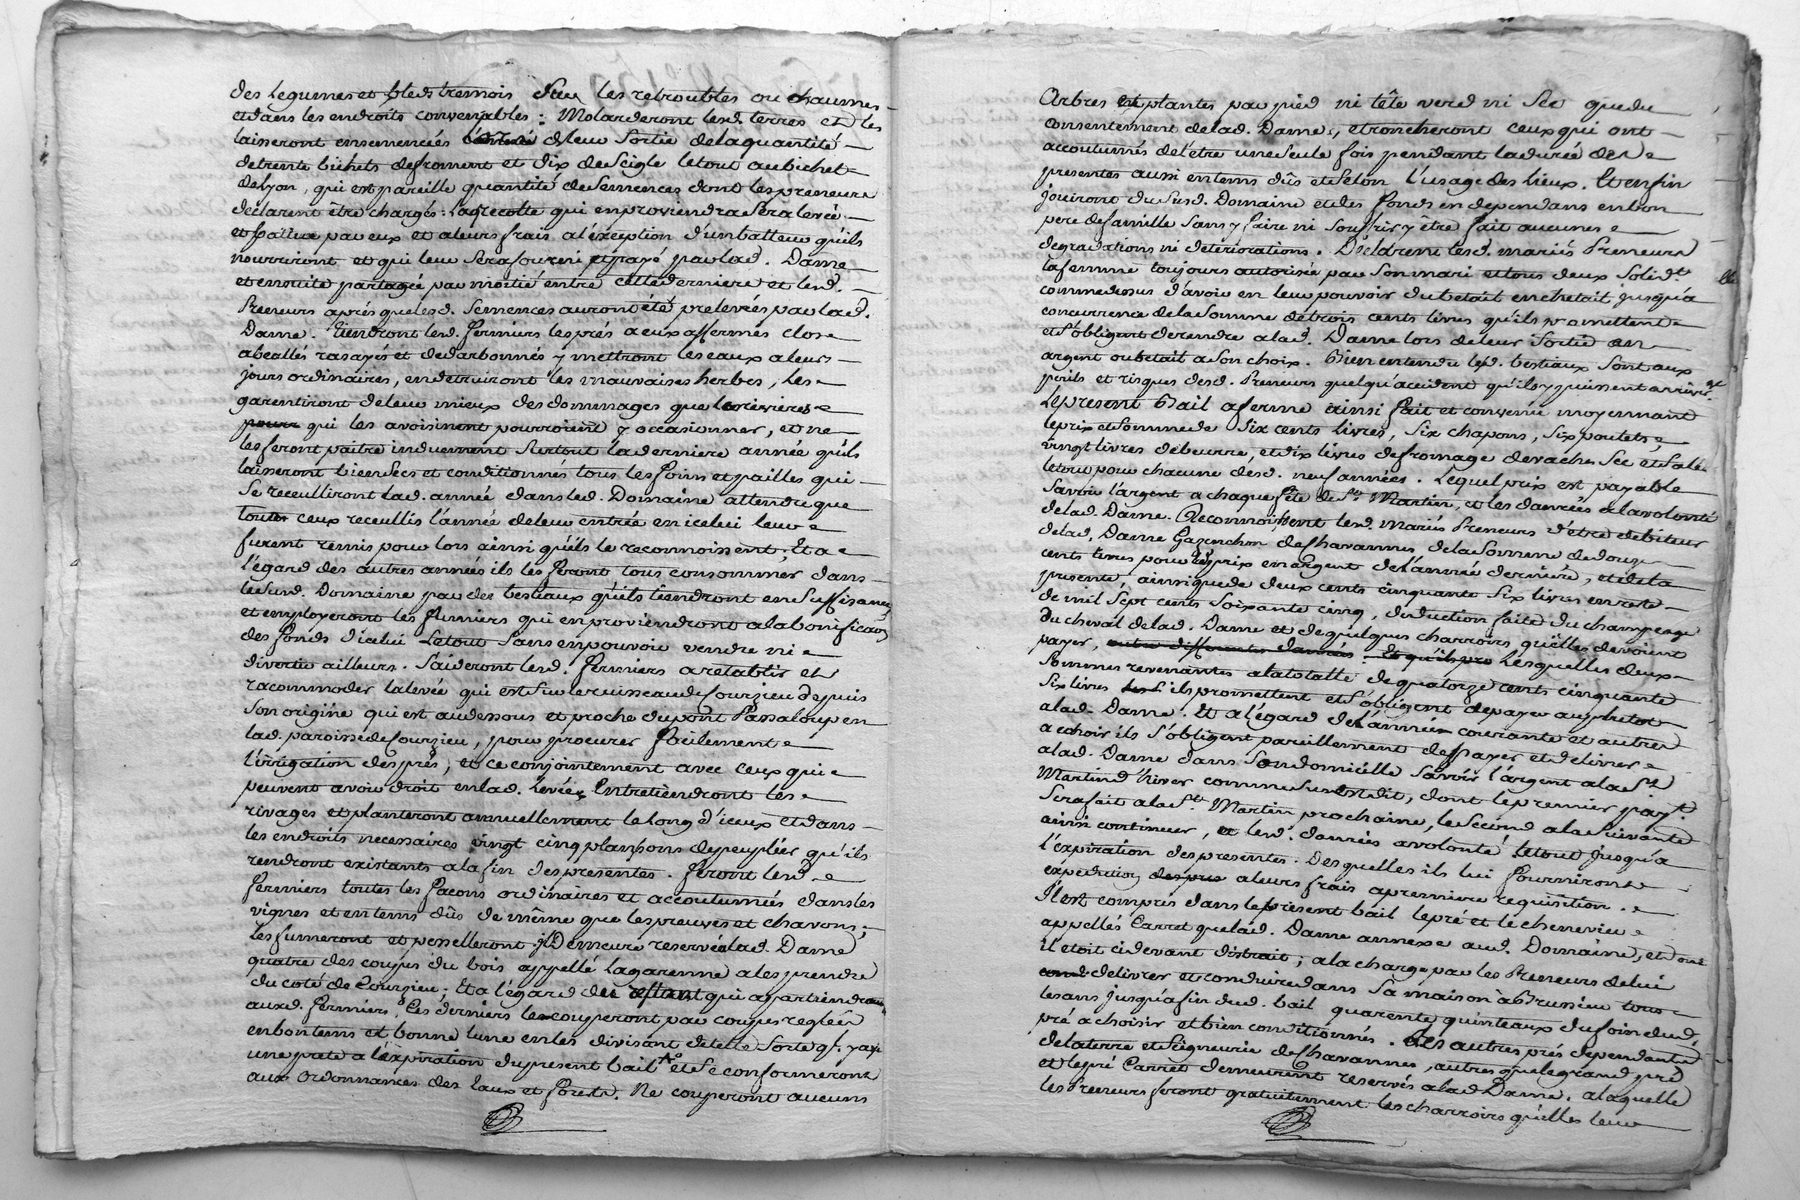 des Legumes et bleds tremois sur les retroubles ou chaumes
et dans les endroits convenables : Molarderont lesd. terres et les
laisseront ensemencées de leur sortie de la quantité
de trente bichets de froment et dix de Seigle le tout au bichet
de Lyon, qui est pareille quantité de Semences dont les preneurs
declarent être chargés : La recolte qui en proviendra Sera levée
et battue par eux et a leurs frais a l'exception d'un batteur qu'ils
nourriront et qui leur Sera fourni et payé par lad. Dame
et ensuite partagée par moitié entre cette derniere et lesd.
Preneurs après que lesd. Semences auront été prelevées par lad.
Dame. Tiendront lesd. fermiers les prés a eux affermés clos
abeallés rasayés et dedarbonnés y mettront les eaux a leurs
jours ordinaires, en detruiront les mauvaises herbes, les
garentiront de leur mieux des dommages que les rivieres
qui les avoisinent pourroient y occasionner, et ne
les feront paitre induement Surtout la derniere année qu'ils
laisseront bien Secs et conditionnés tous les foins et pailles qui
Se receuilliront lad. année dans led. Domaine attendu que
tous ceux receullis l'année de leur entrée en icelui leur
furent remis pour lors ainsi qu'ils le reconnoissent ; Et a
l'égard des autres années ils les feront tous consommer dans
le Susd. Domaine par des bestiaux qu'ils tiendront en Suffisance
et employeront les fumiers qui en proviendront a la bonification
des fonds d'icelui Le tout Sans en pouvoir vendre ni
divertir ailleurs. S'aideront lesd. fermiers a retablir et
racommoder la levée qui est Sur le ruisseau de Courzieu depuis
Son origine qui est au dessous et proche du pont Passaloup en
lad. paroisse de Courzieu, pour procurer facilement
l'irrigation des prés, et ce conjointement avec ceux qui
peuvent avoir droit en lad. Levée ; Entretiendront les
rivages et planteront annuellement le long d'iceux et dans
les endroits necessaires vingt cinq plansons de peuplier qu'ils
rendront existants a la fin des presentes. feront lesd.
fermiers toutes les façons ordinaires et accoutumées dans les
vignes et en tems dûs de même que les preuves et chavons ;
Les fumeront et pesselleront. Il Demeure reservé a lad. Dame
quatre des coupes du bois appellé Lagarenne a les prendre
du coté de Courzieu ; Et a l'égard du restant qui appartiendra
auxd. fermiers, Ces derniers le couperont par coupes reglées
en bon tems et bonne lune en les divisant de telle Sorte q'il y aye
une prete a l'expiration du present bail et Se conformeront
aux Ordonnances des Eaux et forets. Ne couperont aucuns
Arbres et plantes par pied ni tête verd ni Sec que du
consentement de lad. Dame, etroncheront ceux qui ont
accoutumés de l'être une Seule fois pendant la durée des
presentes aussi en tems dûs et Selon l'usage des lieux. Et enfin
jouiront du Susd. Domaine et des fonds en dependans en bon
pere de famille Sans y faire ni Souffrir y être fait aucunes
degradations ni deteriorations. Declarent lesd. mariés Preneurs
la femme toujours autorisée par Son mari et tous deux Solid.t
comme dessus d'avoir en leur pouvoir du betail en chetail, jusqu'a
concurrence de la Somme de trois cents livres qu'ils promettent
et S'obligent de rendre a lad. Dame lors de leur Sortie en
argent ou betail a Son choix. Bien entendu lesd. bestiaux Sont aux
perils et risques desd. Preneurs quelqu'accident qu'ils y puissent arriver.
Le present Bail a ferme ainsi fait et convenu moyennant
le prix et Somme de Six cents livres, Six chapons, Six poulets,
vingt livres de beurre, et dix livres de fromage de vache Sec et Salé
le tout pour chacune desd. neuf années. Lequel prix est payable
Savoir l'argent a chaque fête de S.t Martin, et les danrées a la volonté
de lad. Dame. Reconnoissent lesd. mariés Preneurs d'etre debiteur
de lad. Dame Gazanchon de Chavannes de la Somme de douze
cents livres pour le prix en argent de l'année derniere, et de la
presente, ainsi que de deux cents cinquante Six livres en reste
de mil Sept cents Soixante cinq, deduction faite du champeage
du cheval de lad. Dame et de quelques charrois qu'elle devoient
payer, Lesquelles deux
Sommes revenantes a la totalle de quatorze cents cinquante
Six livres ils promettent et S'obligent de payer au plutot
a lad. Dame. Et a l'égard de l'année courante et autres
a echoir ils S'obligent pareillement de payer et delivrer
a lad. Dame dans Son domicille Savoir l'argent a la S.t
Martin d'hiver comme Susest dit, dont le premier pay.t
Sera fait a la S.t Martin prochaine, le Second a la Suivante
ainsi continuer, et lesd. danrées a volonté Le tout jusqu'a
l'expiration des presentes. Desquelles ils lui fourniront
expedition a leurs frais a premiere requisition.
Il est compris dans le present bail le pré et le chenevier
appellés Carret que lad. Dame annexe aud. Domaine, et dont
il etoit ci devant distrait ; a la charge par les Preneurs de lui
delivrer et conduire dans Sa maison à Brussieu tous
les ans jusqu'a fin dud. bail quarente quinteaux du foin dud.
pré a choisir et bien conditionnés. Les autres prés dependants
de la terre et Seigneurie de Chavannes, autres que le grand pré
et le pré Carret demeurent reservés a lad. Dame, a laquelle
les Preneurs feront gratuitement les charrois qu'elles leur